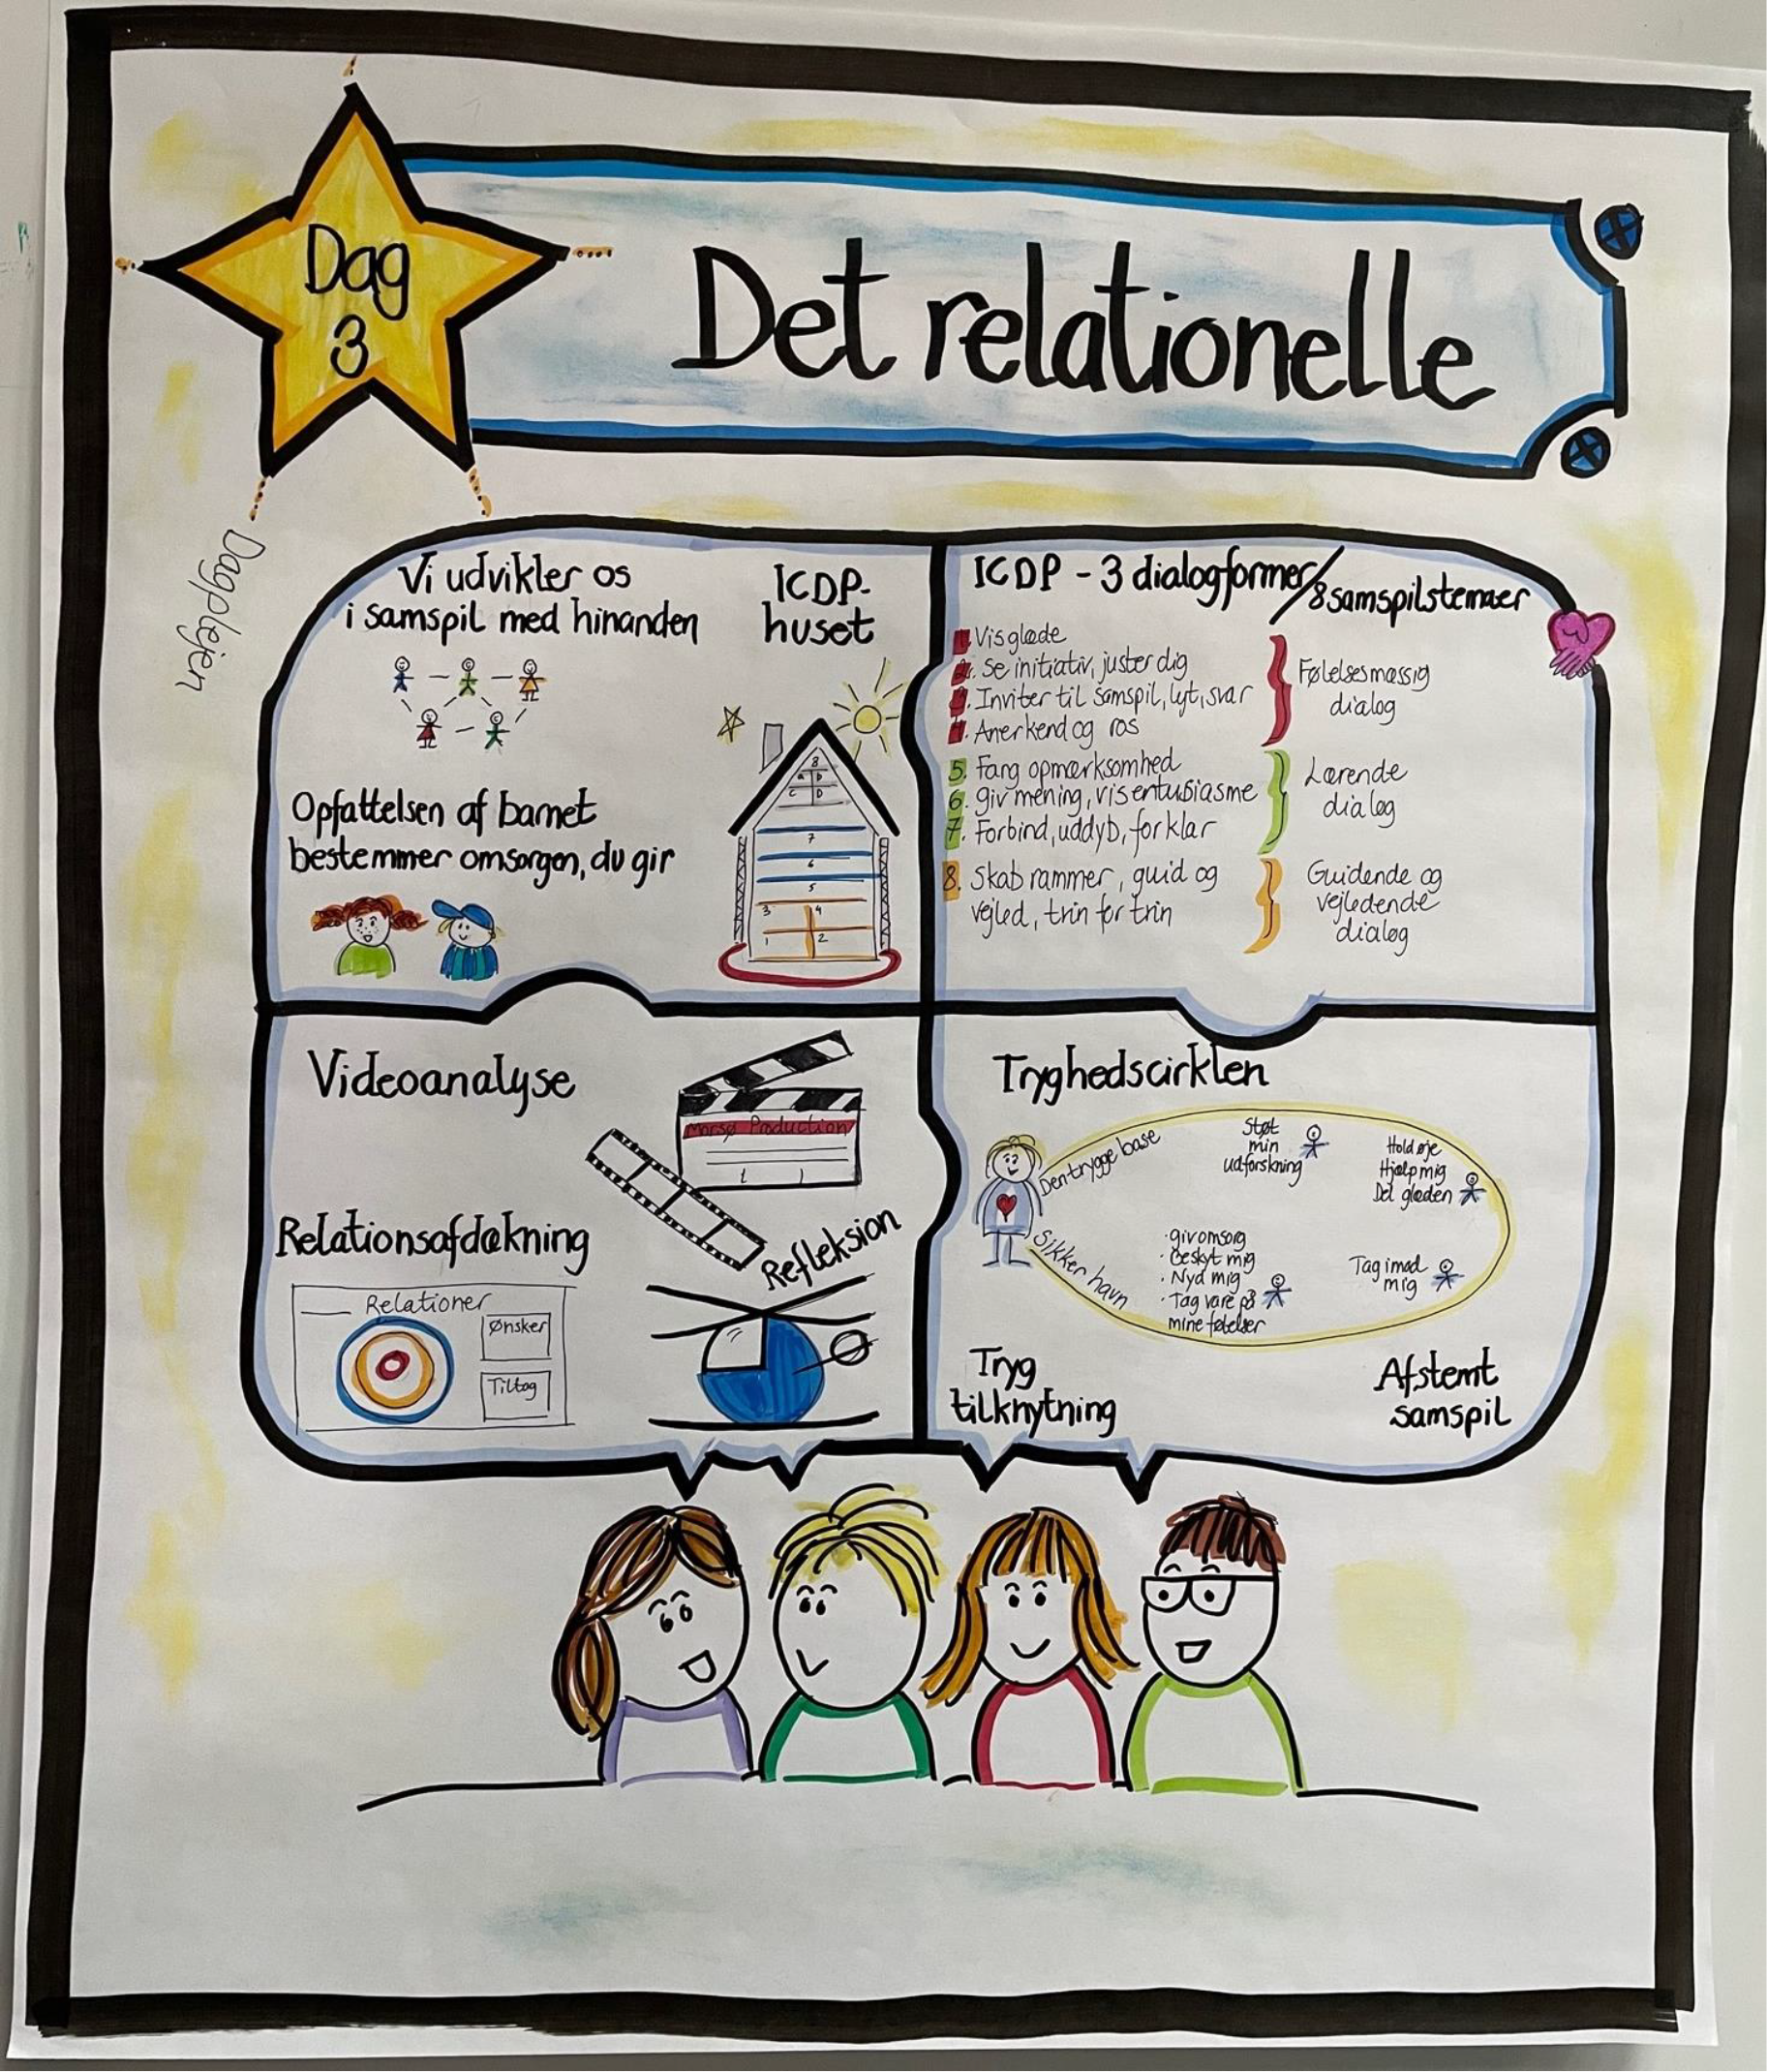 Dag
3
Det relationelle
Dagplejen
Vi udvikler os
i samspil med hinanden
ICDP-
huset
Opfattelsen af barnet
bestemmer omsorgen, du gir
8
a b
c D
7
6
5
3 4
1 2
ICDP - 3 dialogformer/
8 samspilstemaer
1. Vis glæde
2. Se initiativ, juster dig
3. Inviter til samspil, lyt, svar
4. Anerkend og ros
Følelsesmæssig
dialog
5. Fang opmærksomhed
6. giv mening, vis entusiasme
7. Forbind, uddyb, forklar
Lærende
dialog
8. Skab rammer, guid og
vejled, trin for trin
Guidende og
vejledende
dialog
Videoanalyse
Morsø Production
Relationsafdækning
Refleksion
Relationer
Ønsker
Tiltag
Tryghedscirklen
Den trygge base
Støt
min
udforskning
Hold øje
Hjælp mig
Del glæden
Sikker havn
· giv omsorg
· Beskyt mig
· Nyd mig
· Tag vare på
mine følelser
Tag imod
mig
Tryg
tilknytning
Afstemt
samspil